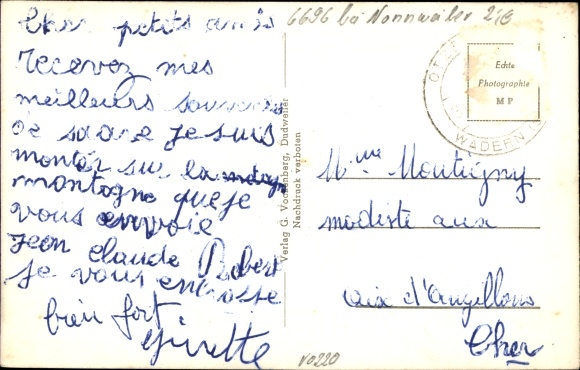 6696 bei Nonnweiler 21B
Cher petits amis
recevez mes
meilleurs souvenirs
de saare je suis
montér sur la
montagne que je
vous envoie
Jean Claude Robert
je vous embrasse
bien fort
Ginette
Verlag G. Vochenberg, Dudweiler
Nachdruck verboten
Echte
Photographie
M P
WADERN
Mme Montigny
modiste aux
aix d'Angillons
Cher
v0220